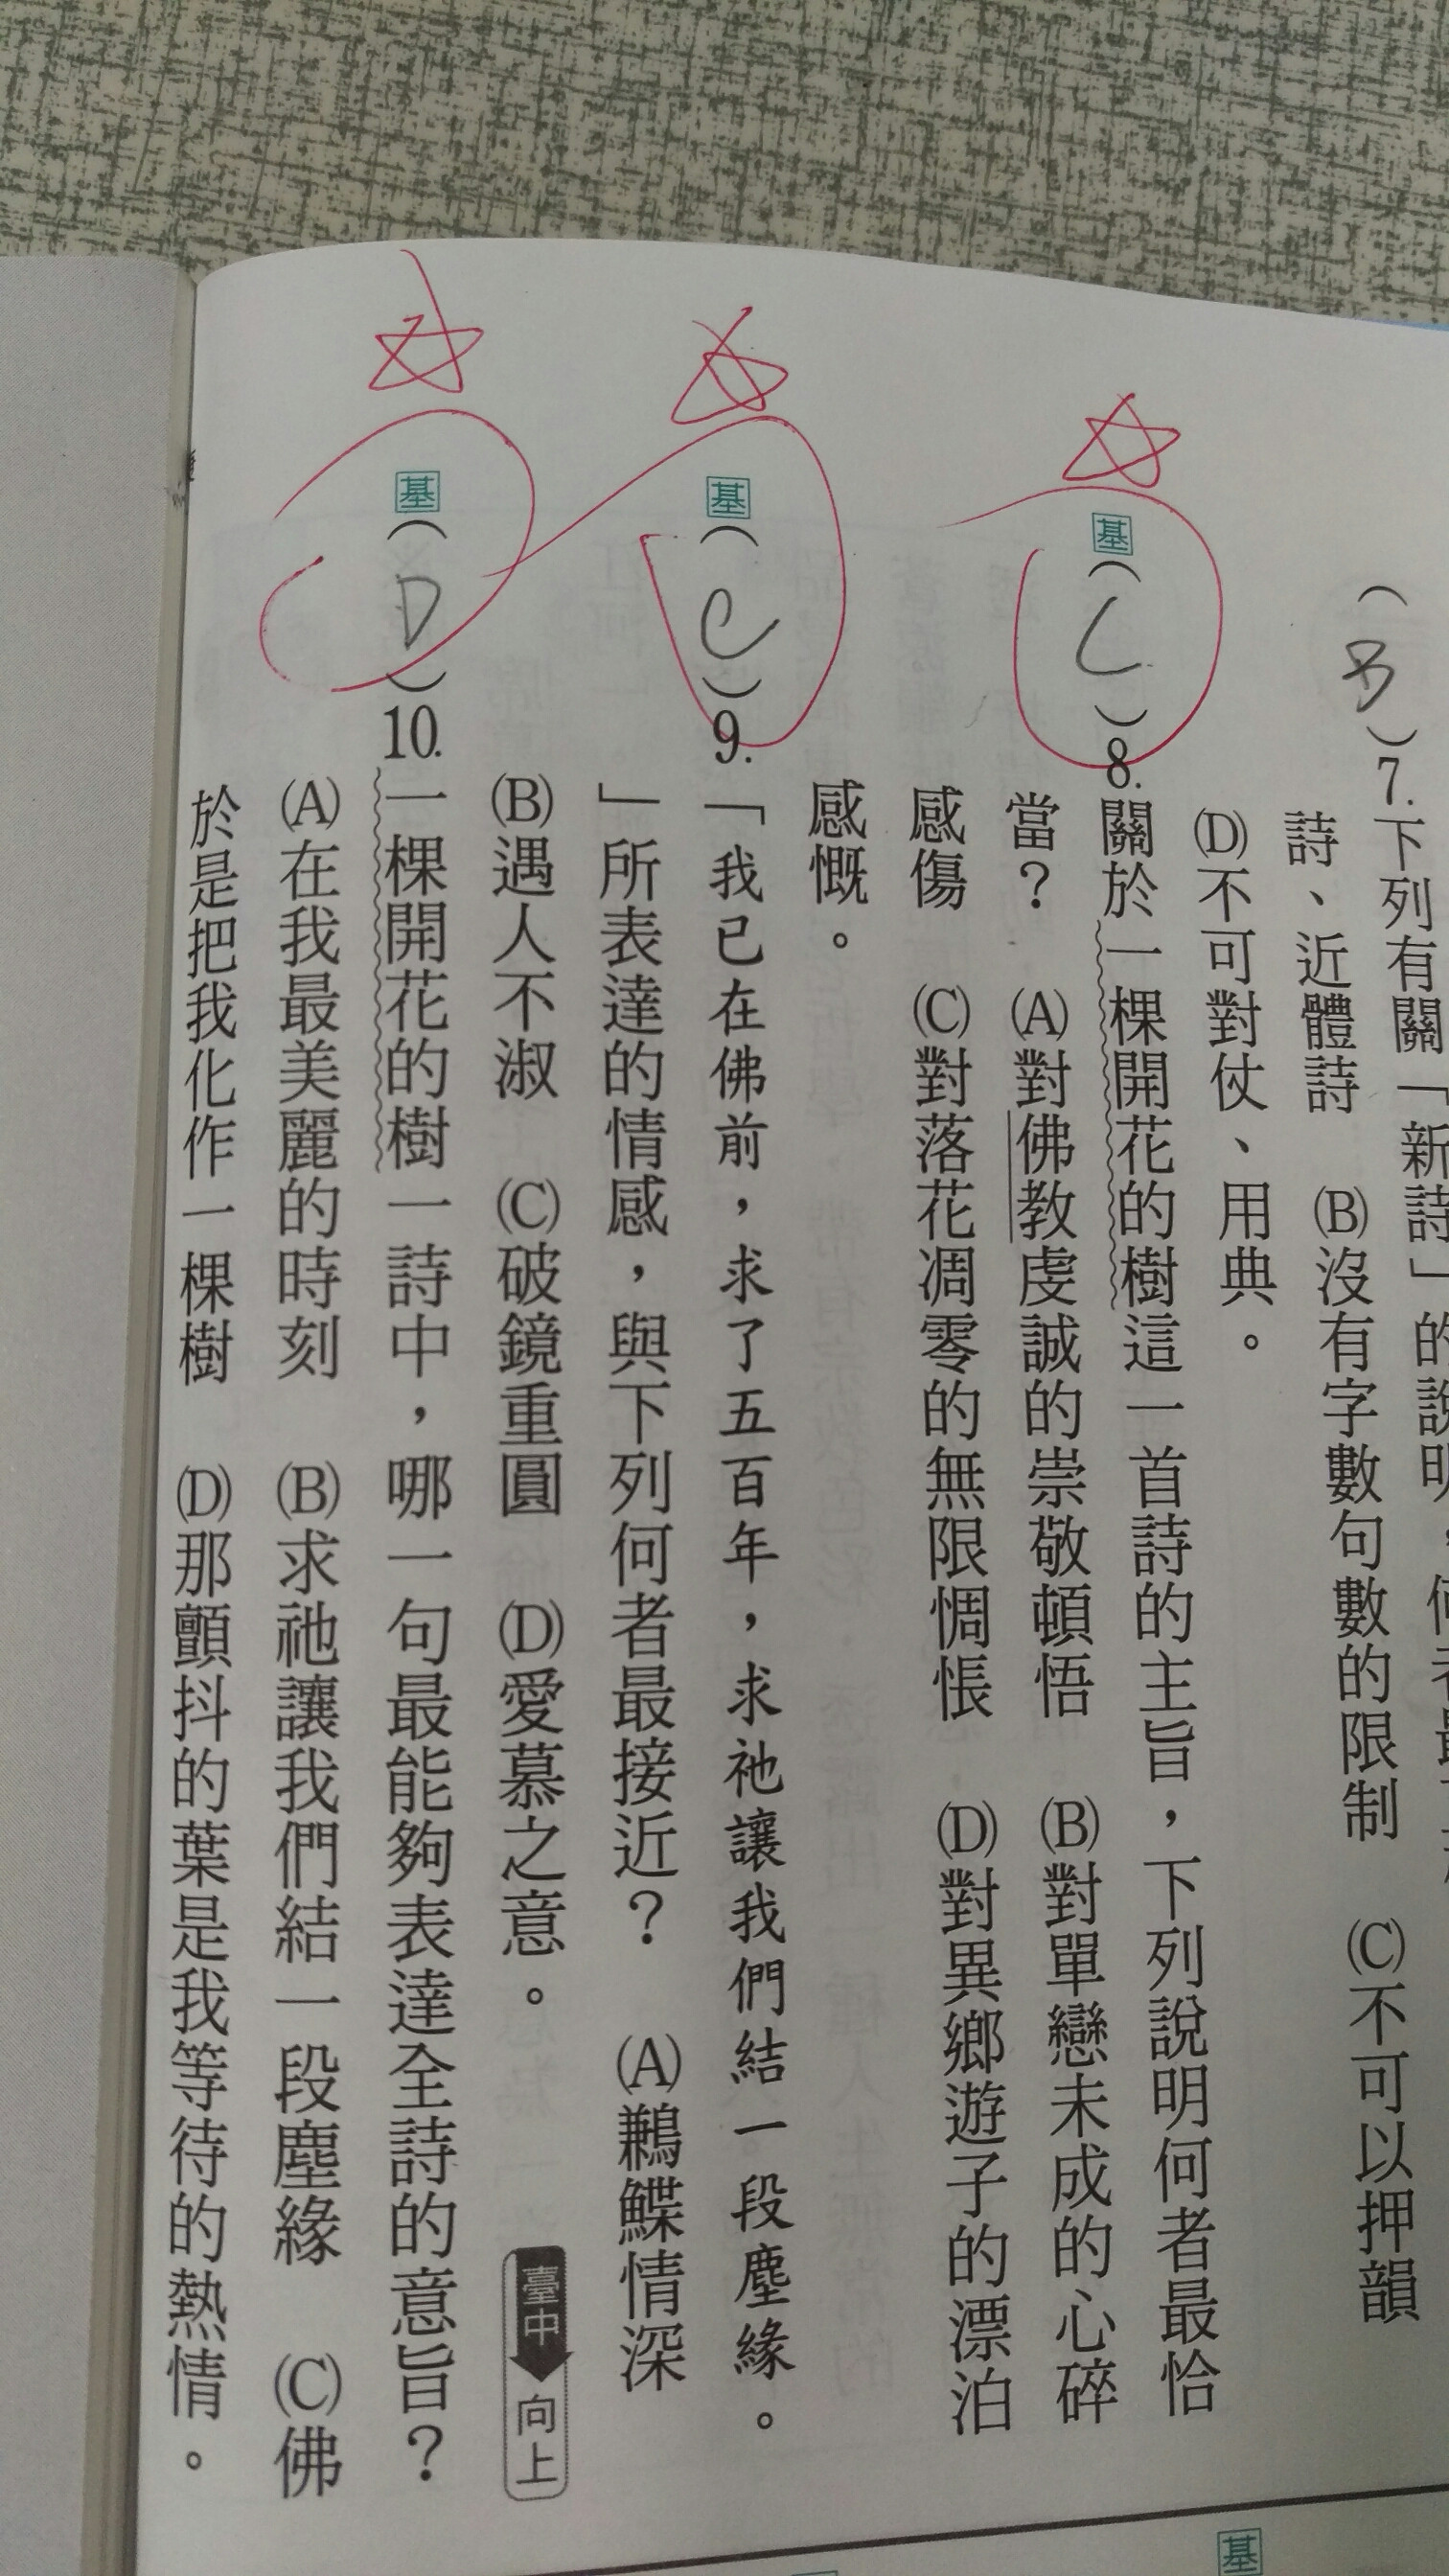 (B)7.下列有關「新詩」的說明，
詩、近體詩　(B)沒有字數句數的限制　(C)不可以押韻
(D)不可對仗、用典。
基(C)8.關於一棵開花的樹這一首詩的主旨，下列說明何者最恰
當？　(A)對佛教虔誠的崇敬頓悟　(B)對單戀未成的心碎
感傷　(C)對落花凋零的無限惆悵　(D)對異鄉遊子的漂泊
感慨。
基(C)9.「我已在佛前，求了五百年，求祂讓我們結一段塵緣。
」所表達的情感，與下列何者最接近？　(A)鶼鰈情深
(B)遇人不淑　(C)破鏡重圓　(D)愛慕之意。　臺中 向上
基(D)10.一棵開花的樹一詩中，哪一句最能夠表達全詩的意旨？
(A)在我最美麗的時刻　(B)求祂讓我們結一段塵緣　(C)佛
於是把我化作一棵樹　(D)那顫抖的葉是我等待的熱情。
基